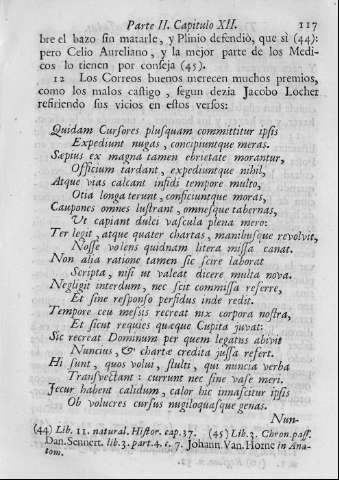 Parte II. Capitulo XII. 117
bre el bazo sin matarle, y Plinio defendiò, que sì (44):
pero Celio Aureliano, y la mejor parte de los Medi-
cos lo tienen por conseja (45).
12 Los Correos buenos merecen muchos premios,
como los malos castigo, segun dezia Jacobo Locher
refiriendo sus vicios en estos versos:
Quidam Cursores plusquam committitur ipsis
Expediunt nugas, concipiuntque meras.
Sæpius ex magna tamen ebrietate morantur,
Officium tardant, expediuntque nihil,
Atque vias calcant infids tempore multo,
Otia longa terunt, conficiuntque moras,
Caupones omnes lustrant, omnesque tabernas,
Ut capiant dulci vascula plena mero:
Ter legit, atque quater chartas, manibusque revolvit,
Nosse volens quidnam litera missa canat.
Non alia ratione tamen sic scire laborat
Scripta, nisi ut valeat dicere multa nova.
Negligit interdum, nec scit commissa referre,
Et sine responso perfidus inde redit.
Tempore ceu messis recreat nix corpora nostra,
Et sicut requies quæque Cupita juvat:
Sic recreat Dominum per quem legatus abivit
Nuncius, & chartæ credita jussa refert.
Hi sunt, quos volui, stulti, qui nuncia verba
Transvectant: currunt nec sine vase meri.
Jecur habent calidum, calor hic innascitur ipsis
Ob volucres cursus nugiloquasque genas.
Nun-
(44) Lib. 11. natural. Histor. cap. 37. (45) Lib. 3. Chron. pass.
Dan. Sennert. lib. 3. part. 4. c. 7. Johann. Van. Horne in Ana-
tom.